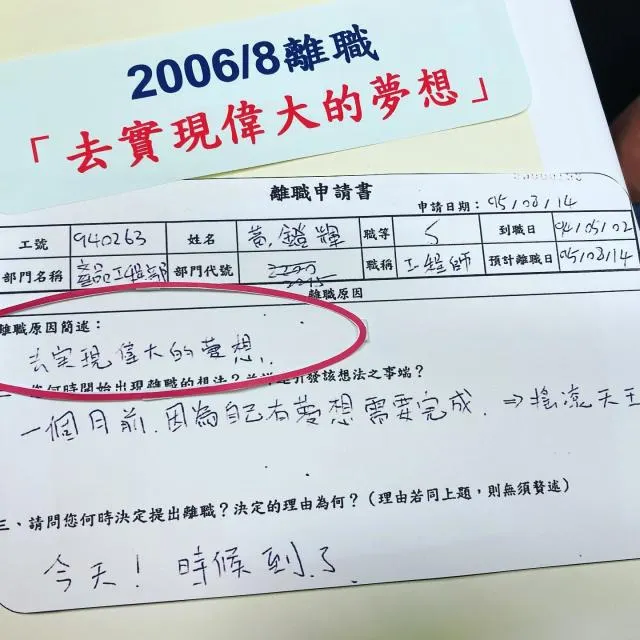 2006/8離職
「去實現偉大的夢想」
離職申請書
申請日期：95/08/14
工號 940263 姓名 黃鐙輝 職等 5 到職日 94/05/02
部門名稱 產品工程部 部門代號 2215 職稱 工程師 預計離職日 95/08/14
離職原因
離職原因簡述：
去實現偉大的夢想.
您何時開始出現離職的想法？並請述引發該想法之事端？
一個月前.因為自己有夢想需要完成. ⇒搖滾天王
三、請問您何時決定提出離職？決定的理由為何？（理由若同上題，則無須贅述）
今天！時候到了.